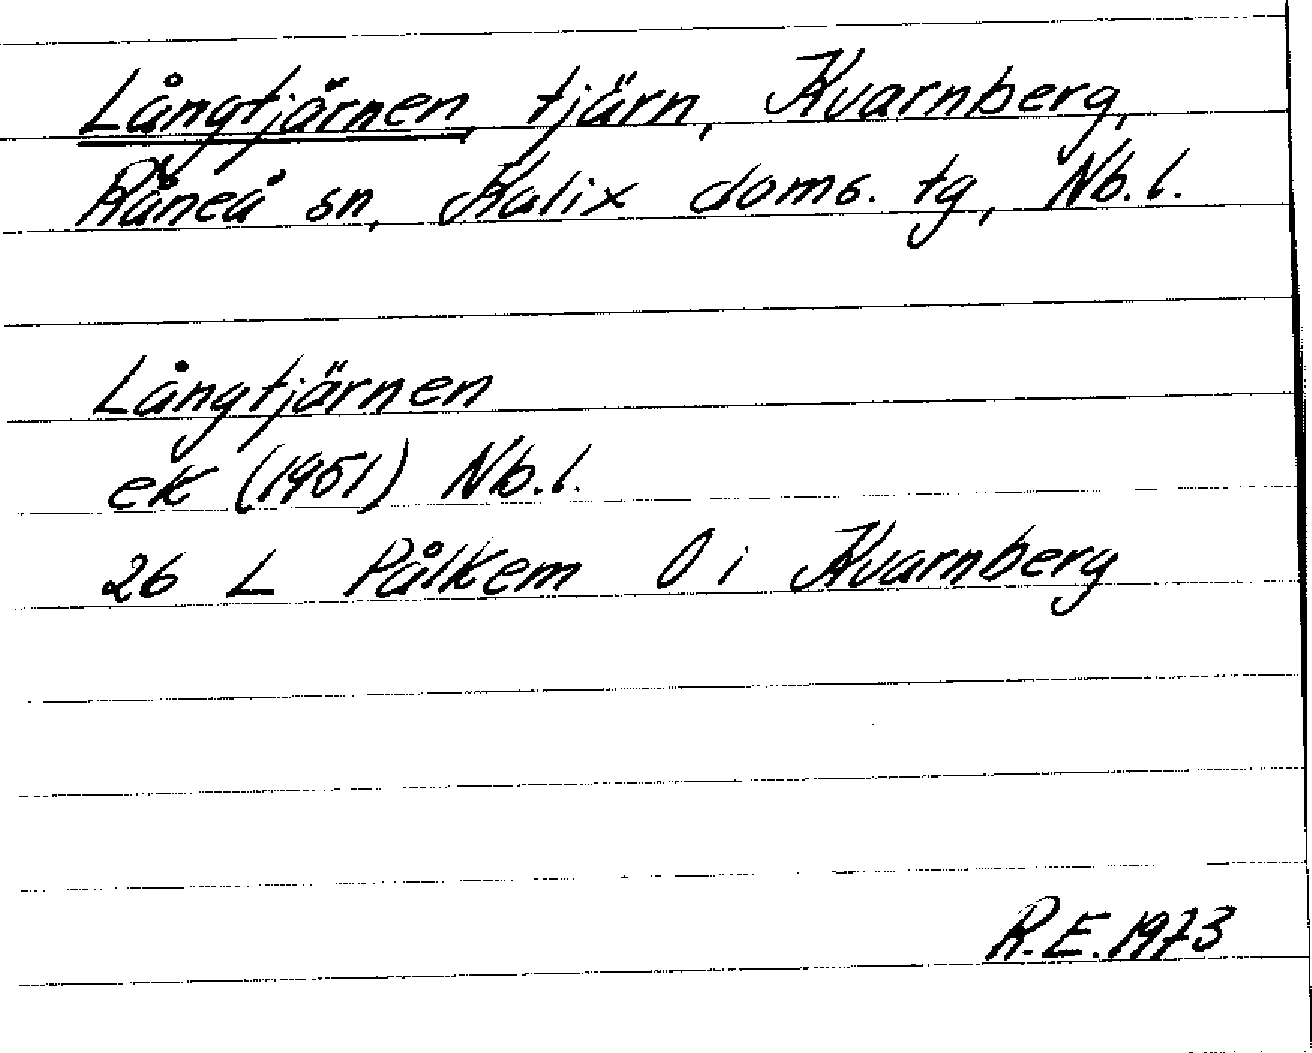 Långtjärnen, tjärn, Kvarnberg,
Råneå sn, Kalix doms. tg, Nb. l.
Långtjärnen
ek (1951) Nb. l.
26 L Pålkem O i Kvarnberg
R.E. 1973